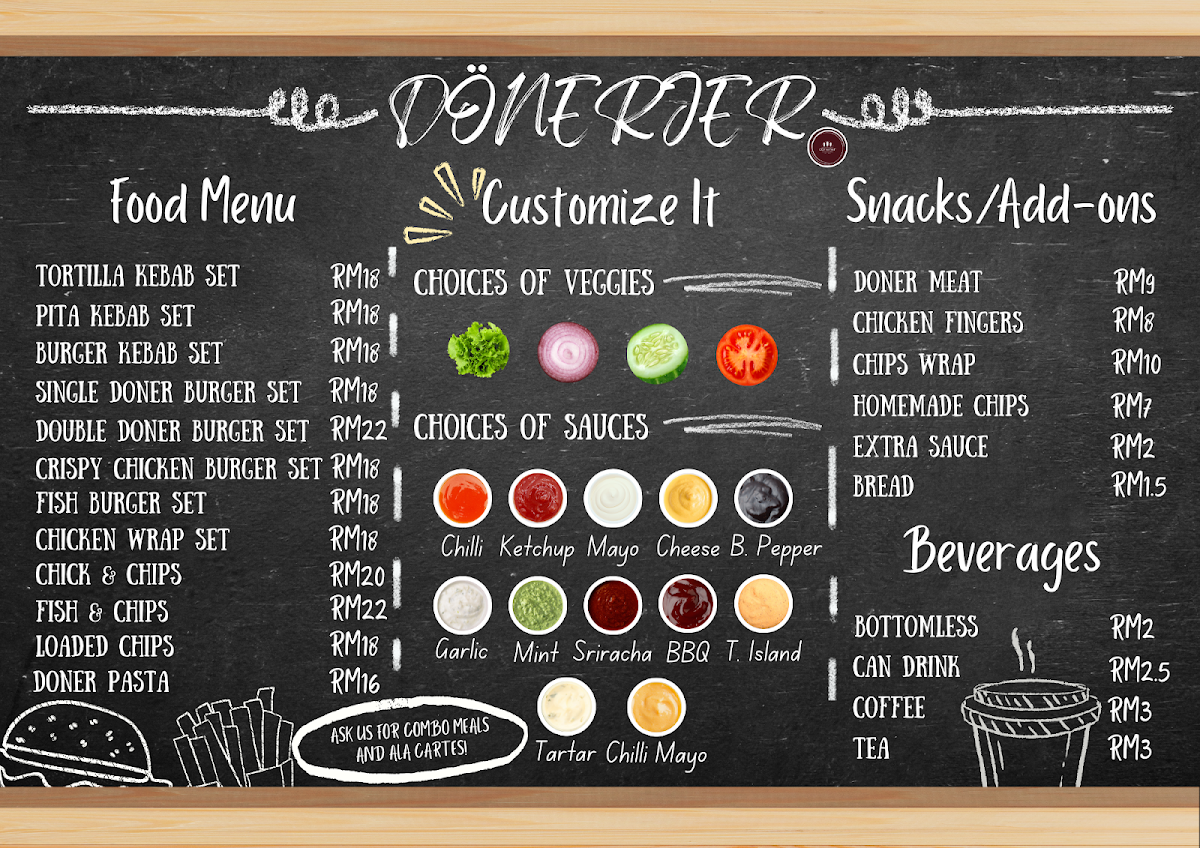 DÖNERJER
Food Menu
TORTILLA KEBAB SET RM18
PITA KEBAB SET RM18
BURGER KEBAB SET RM18
SINGLE DONER BURGER SET RM18
DOUBLE DONER BURGER SET RM22
CRISPY CHICKEN BURGER SET RM18
FISH BURGER SET RM18
CHICKEN WRAP SET RM18
CHICK & CHIPS RM20
FISH & CHIPS RM22
LOADED CHIPS RM18
DONER PASTA RM16
ASK US FOR COMBO MEALS
AND ALA CARTES!
Customize It
CHOICES OF VEGGIES
CHOICES OF SAUCES
Chilli Ketchup Mayo Cheese B. Pepper
Garlic Mint Sriracha BBQ T. Island
Tartar Chilli Mayo
Snacks/Add-ons
DONER MEAT RM9
CHICKEN FINGERS RM8
CHIPS WRAP RM10
HOMEMADE CHIPS RM7
EXTRA SAUCE RM2
BREAD RM1.5
Beverages
BOTTOMLESS RM2
CAN DRINK RM2.5
COFFEE RM3
TEA RM3